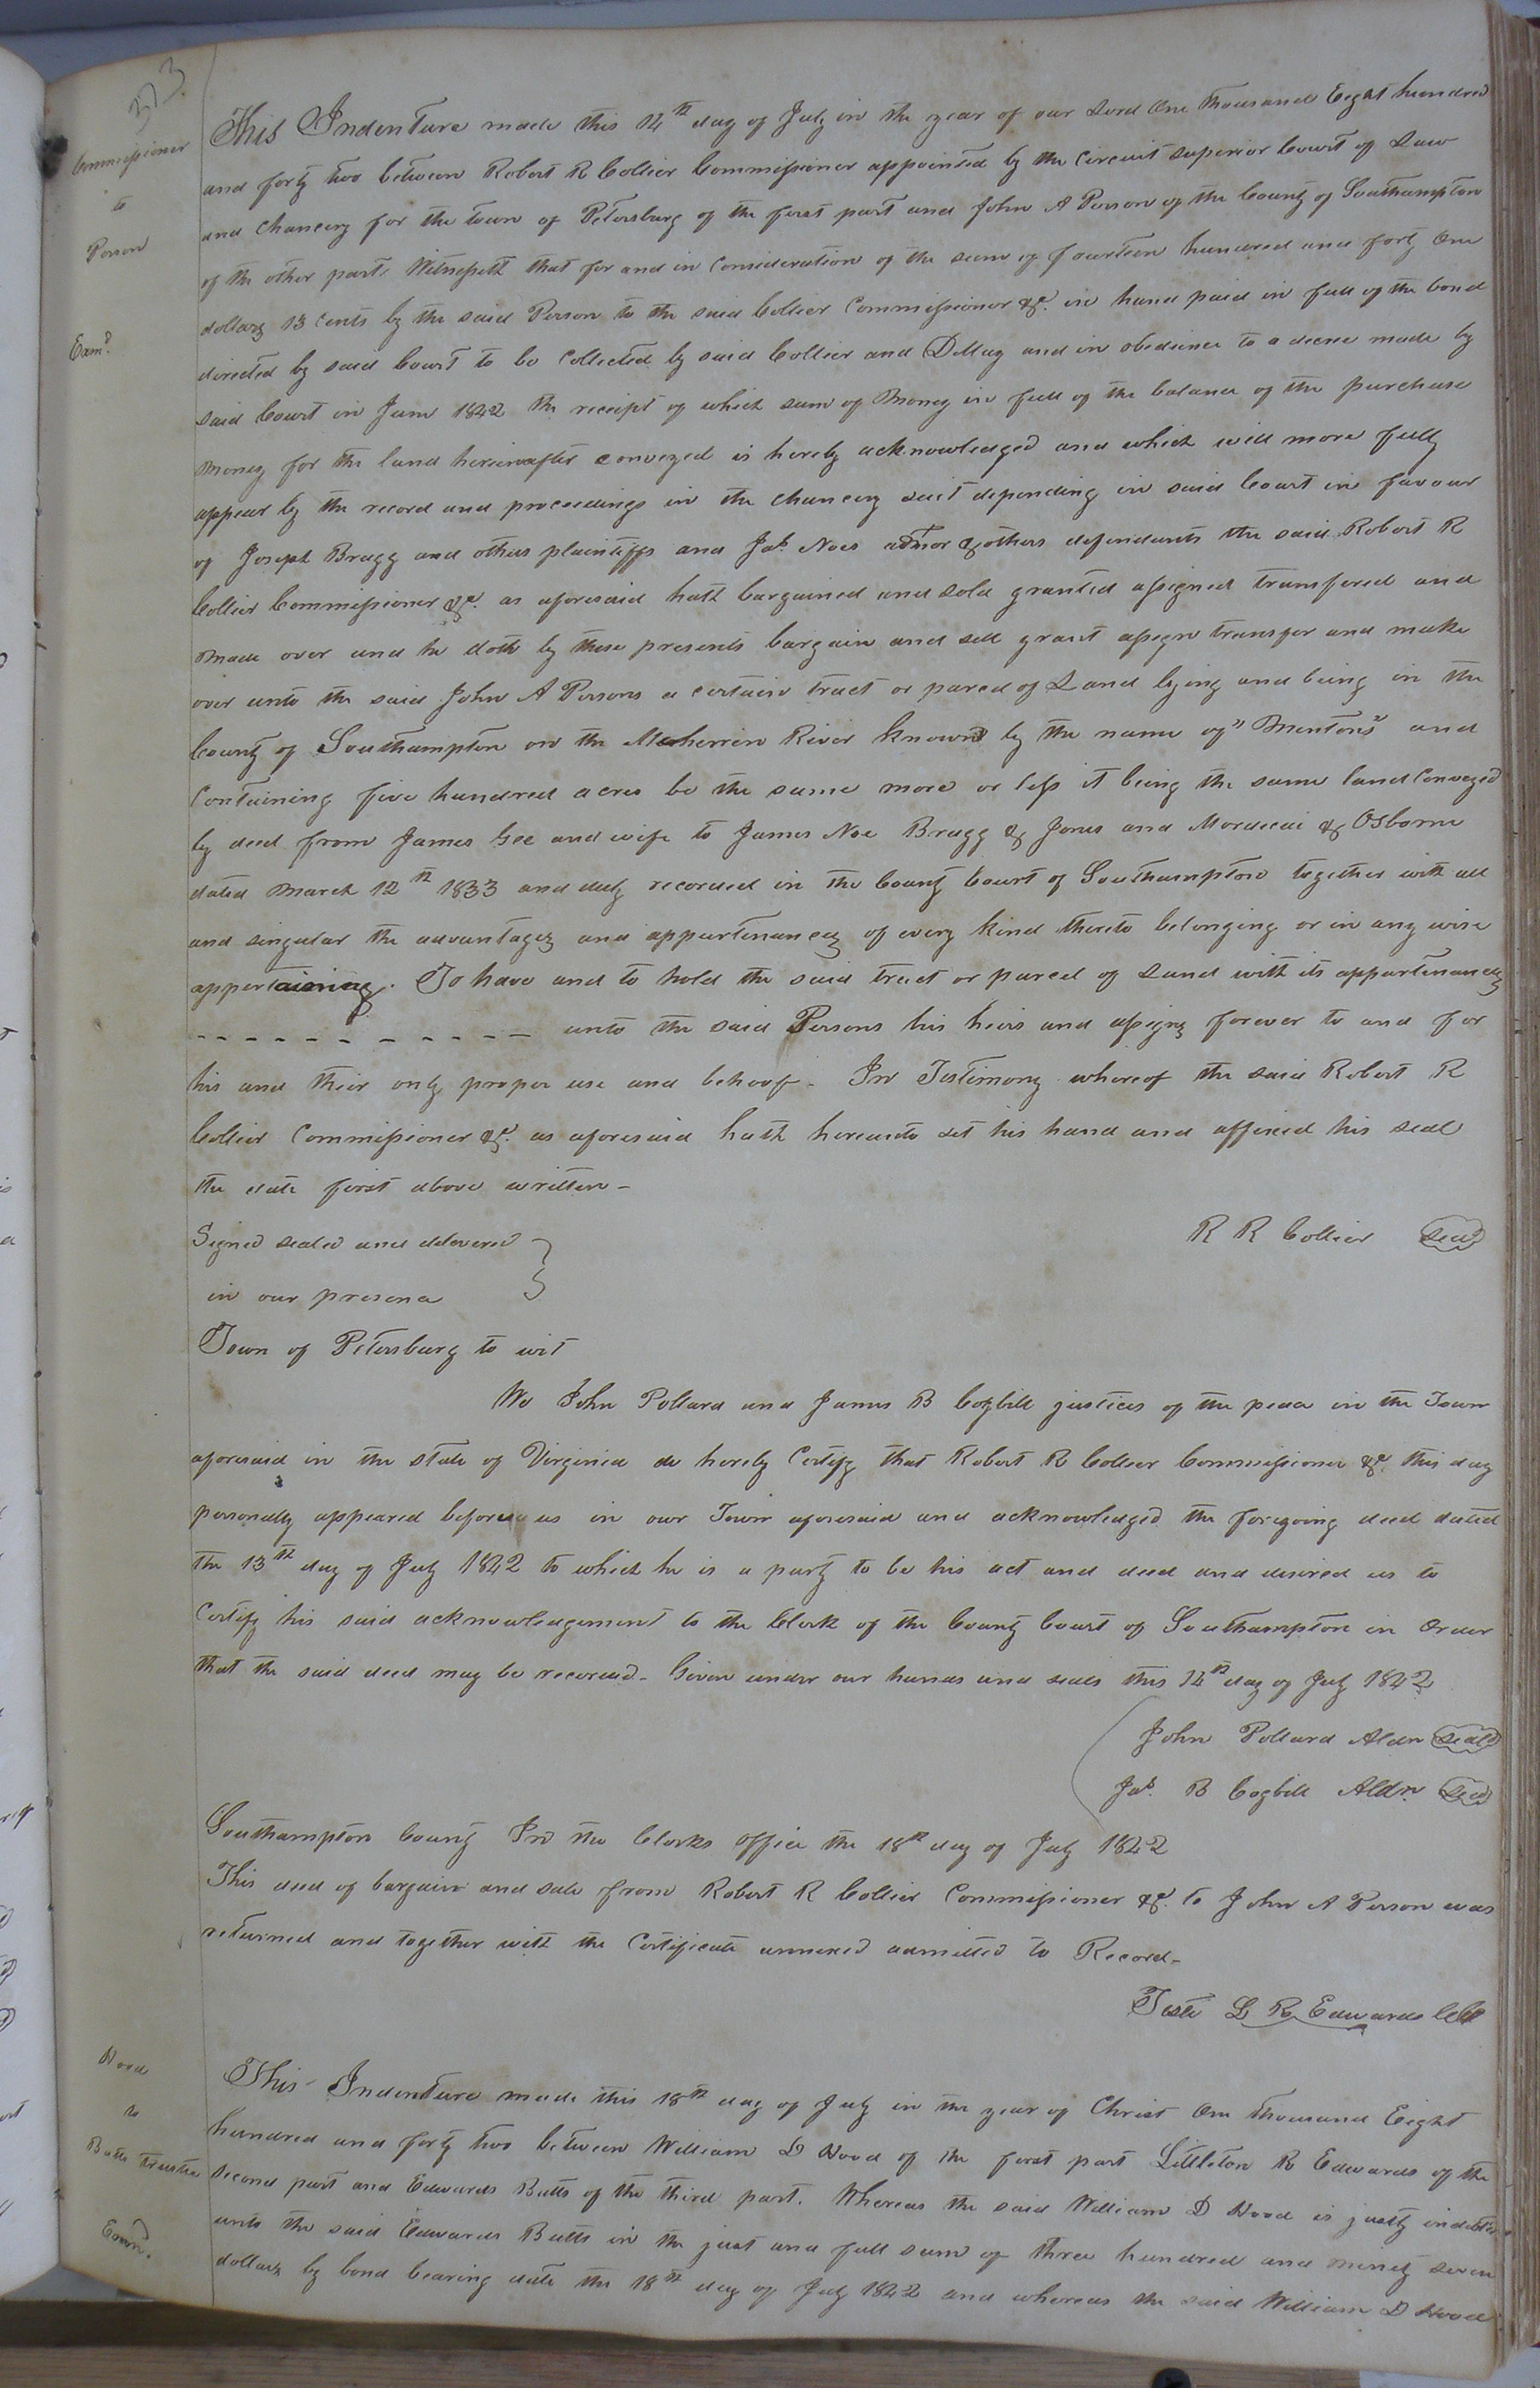 373
Commissioner
to
Person
Exmd.
This Indenture made this 14th day of July in the year of our Lord One thousand Eight hundred
and forty two between Robert R Collier Commissioner appointed by the Circuit superior Court of Law
and Chancery for the town of Petersburg of the first part and John A Person of the County of Southampton
of the other part. Witnesseth that for and in Consideration of the sum of fourteen hundred and forty One
dollars 13 Cents by the said Person to the said Collier Commissioner &c. in hand paid in full of the bond
directed by said Court to be Collected by said Collier and and in obedience to a decree made by
said Court in June 1842 the receipt of which sum of Money in full of the balance of the purchase
Money for the land hereinafter conveyed is hereby acknowledged and which will more fully
appear by the record and proceedings in the Chancery suit depending in said Court in favour
of Joseph Bragg and others plaintiffs and Jas. Noes admor & others defendants the said Robert R
Collier Commissioner &c. as aforesaid hath bargained and sold granted assigned transfered and
made over and he doth by these presents bargain and sell grant assign transfer and make
over unto the said John A Persons a certain tract or parcel of Land lying and being in the
County of Southampton on the Meherrin River known by the name of "Mentons" and
Containing five hundred acres be the same more or less it being the same land Conveyed
by deed from James Gee and wife to James Noe Bragg & Jones and Mordecai & Osborne
dated March 12th 1833 and duly recorded in the County Court of Southampton together with all
and singular the advantages and appurtenances of every kind thereto belonging or in any wise
appertaining. To have and to hold the said tract or parcel of Land with its appurtenances
- - - - - - - - - - - - unto the said Persons his heirs and assigns forever to and for
his and their only proper use and behoof - In Testimony whereof the said Robert R
Collier Commissioner &c. as aforesaid hath hereunto set his hand and affixed his seal
the date first above written -
R R Collier seal
Signed sealed and delevered }
in our presence
Town of Petersburg to wit
We John Pollard and James B Cogbill justices of the peace in the Town
aforesaid in the state of Virginia do hereby Certify that Robert R Collier Commissioner &c. this day
personally appeared before us in our Town aforesaid and acknowledged the foregoing deed dated
the 13th day of July 1842 to which he is a party to be his act and deed and desired us to
Certify his said acknowledgement to the Clerk of the County Court of Southampton in Order
that the said deed may be recorded - Given under our hands and seals this 14th day of July 1842
John Pollard Aldn seal
Jas. B Cogbill Aldn seal
Southampton County In the Clerks office the 18th day of July 1842
This deed of bargain and sale from Robert R Collier Commissioner &c. to John A Person was
returned and together with the Certificate annexed admitted to Record -
Teste L R Edwards
Hood
to
Butts trustee
Exmd.
This Indenture made this 18th day of July in the year of Christ One thousand Eight
hundred and forty two between William D Hood of the first part Littleton R Edwards of the
second part and Edwards Butts of the third part. Whereas the said William D Hood is justly indebted
unto the said Edwards Butts in the just and full sum of three hundred and ninety seven
dollars by bond bearing date the 18th day of July 1842 and whereas the said William D Hood